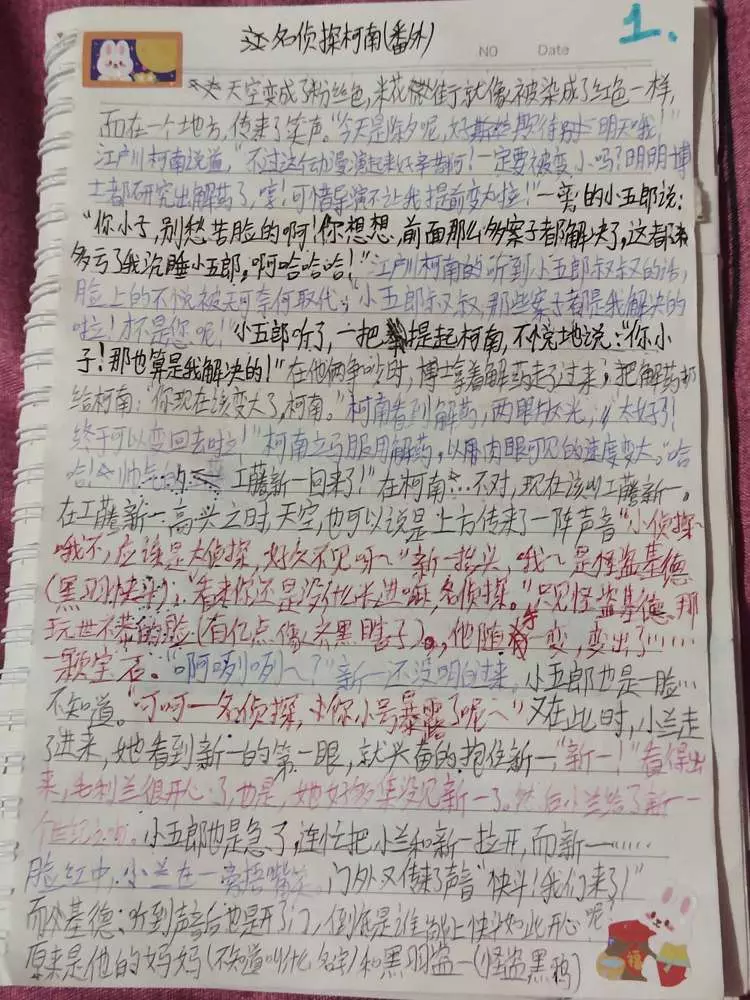 名侦探柯南(番外)
1.
NO
Date
天空变成了粉红色,米花街就像被染成了红色一样,
而在一个地方,传来了笑声。“今天是除夕呢,好期待明天哦!”
江户川柯南说道,“不过这个动漫演起来好辛苦啊!一定要被变小吗?明明博
士都研究出解药了,哼!可惜导演不让我提前变大啦!”一旁的小五郎说:
“你小子,别愁苦脸的啊!你想想,前面那么多案子都解决了,这都
多亏了我沉睡小五郎,啊哈哈哈!”江户川柯南的听到小五郎叔叔的话,
脸上的不悦被无可奈何取代,“小五郎叔叔,那些案子都是我解决的
啦!才不是您呢!”小五郎听了,一把提起柯南,不悦地说:“你小
子!那也算是我解决的!”在他俩争吵时,博士拿着解药走了过来,把解药
给柯南:“你现在该变大了,柯南。”柯南看到解药,两眼放光,“太好了!
终于可以变回去啦!”柯南立马服用解药,以肉眼可见的速度变大。“哈
哈!帅气的工藤新一回来了!”在柯南…不对,现在该叫工藤新一。
在工藤新一高兴之时,天空,也可以说是上方传来了一阵声音“小侦探~
哦不,应该是大侦探,好久不见呀~”新一抬头,哦~是怪盗基德
(黑羽快斗);“看来你还是没什么长进嘛,名侦探。”只见怪盗基德那
玩世不恭的脸(有亿点像),他随手一变,变出了……
一颗宝石。“啊咧咧~?”新一还没明白过来,小五郎也是一脸…
不知道。“呵呵—名侦探,你小号暴露了呢~”又在此时,小兰走
了进来,她看到新一的第一眼,就兴奋的抱住新一,“新一!”看得出
来,毛利兰很开心了,也是,她好多集没见新一了。然后小兰给了新一一
个世纪之吻。小五郎也是急了,连忙把小兰和新一拉开,而新一……
脸红中,小兰在一旁捂嘴笑。门外又传来了声音“快斗!我们来了!”
而基德听到声音后也是开了门,到底是谁能让快斗如此开心呢?
原来是他的妈妈(不知道叫什么名字)和黑羽盗一(怪盗黑鸦)
福